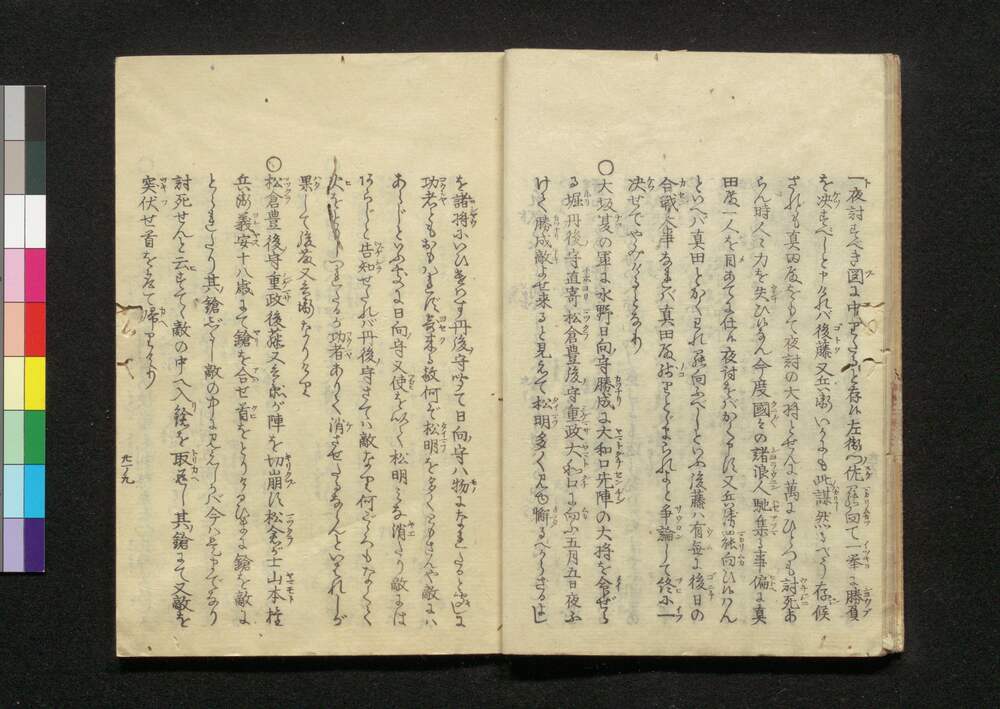 夜討すべき図に中りたると存候左衛門佐罷向て一挙に勝負
を決すべしと申ければ後藤又兵衛いかにも此謀然るべう存候
されども真田殿をもて夜討の大将とせんに萬にひとつも討死あ
らん時人々力を失ひなん今度國々の諸浪人馳集る事偏に真
田殿一人を目あてに仕候夜討をばかくなす又兵衛罷向ひ候はん
といへば真田とかく われ罷向ふべしといふ後藤ハ有無に後日の
合戦大事なるまじ真田殿 とゞまられよと争論して終に一
決せでやみけるとなり
○大坂夏の軍に水野日向守勝成に大和口先陣の大将を命ぜら
る堀丹後守直寄松倉豊後守重政大和口に向ふ五月五日夜ふ
けて勝成敵よせ来ると見えて松明多く見ゆ 懈るべからざる由
を諸将にいひ送らす丹後守聞て日向守ハ物になれたると
功者ともおもはれず よせ来る敵何ぞ松明を多くともさんや敵にハ
あらじといふ に日向守又使を以て松明みな消たり敵には
あらじと告知せたれば丹後守さてハ敵なり何どころもなくて
火をともしつれたるが功者ありて消させたるならんといはれしが
果して後藤又兵衛なりけり
○松倉豊後守重政後藤又兵衛が陣を切崩す松倉が士山本権
兵衛義安十八歳にて鎗を合せ首をとりけるひまに鎗を敵に
とられたり其鎗 敵の中に見えしかバ今ハ是までなり
討死せんと云すてゝ敵の中へ入鎗を取返し其鎗にて又敵を
突伏せ首を取て帰けるとなり
九ノ九